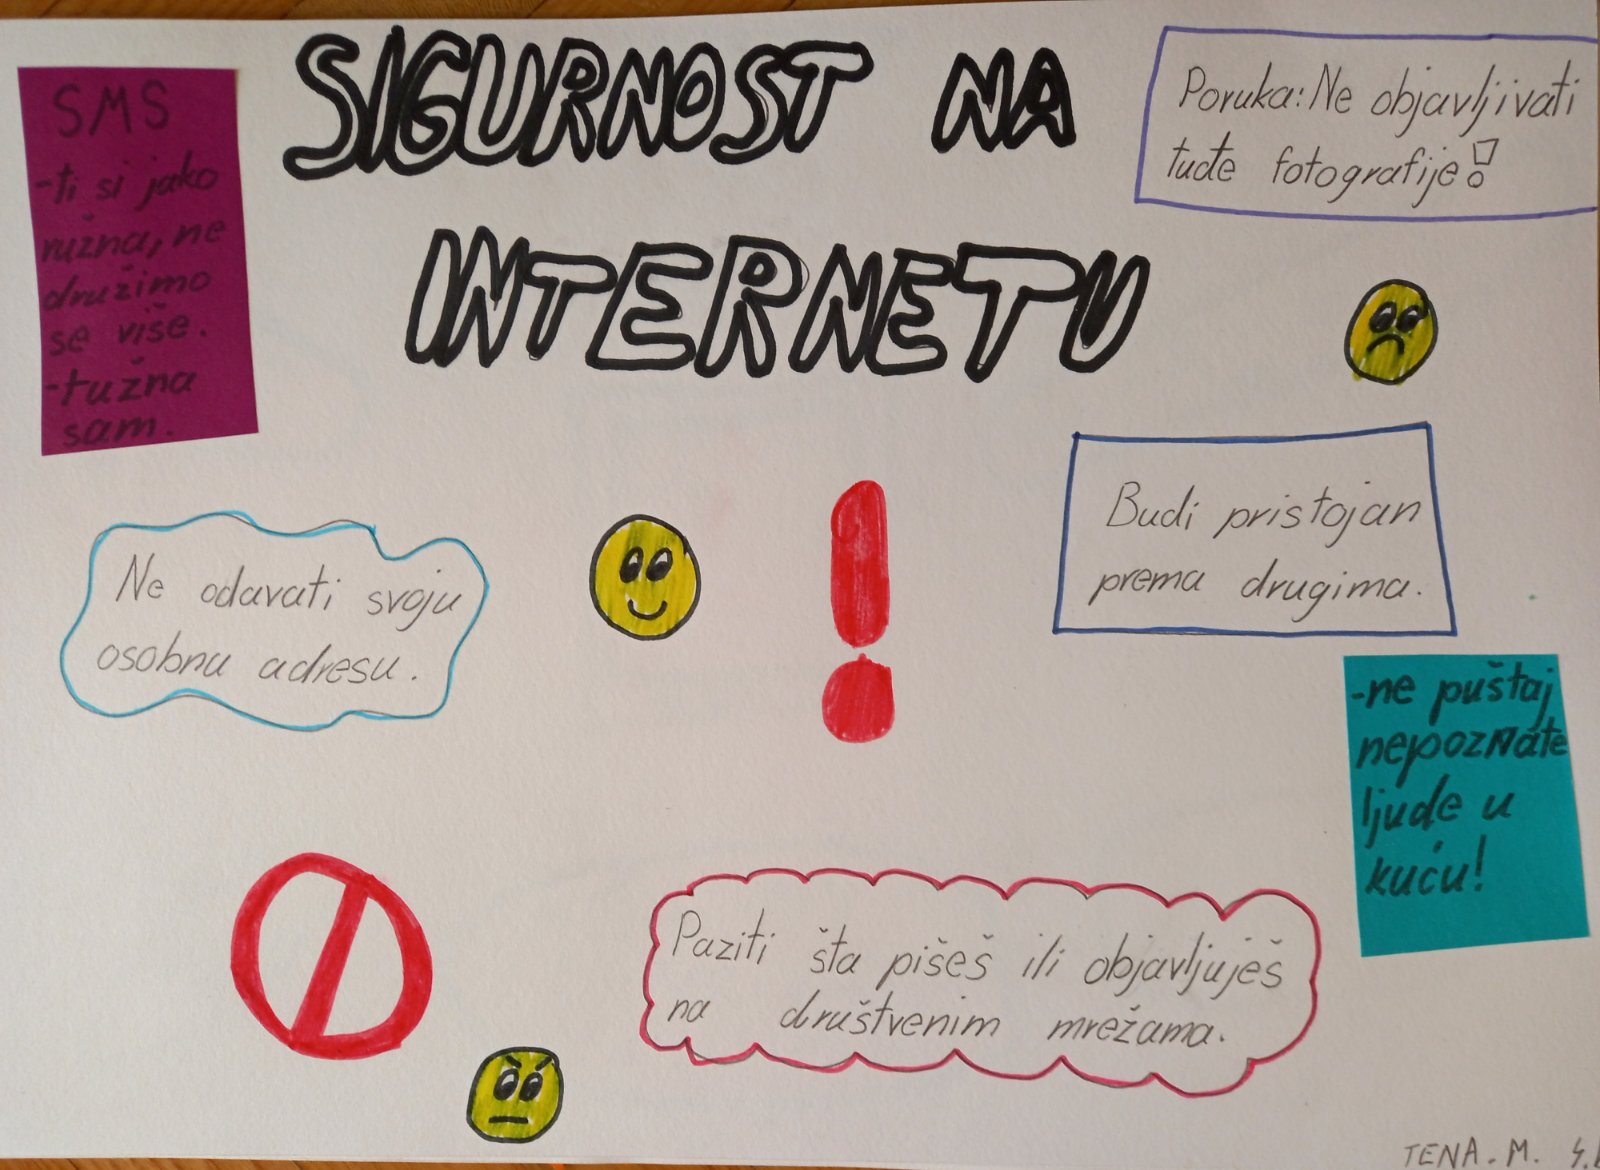 SIGURNOST NA
INTERNETU
SMS
-ti si jako
ružna, ne
družimo
se više.
-tužna
sam.
Poruka: Ne objavljivati
tuđe fotografije!
Budi pristojan
prema drugima.
Ne odavati svoju
osobnu adresu.
-ne puštaj
nepoznate
ljude u
kuću!
Paziti šta pišeš ili objavljuješ
na društvenim mrežama.
TENA. M.